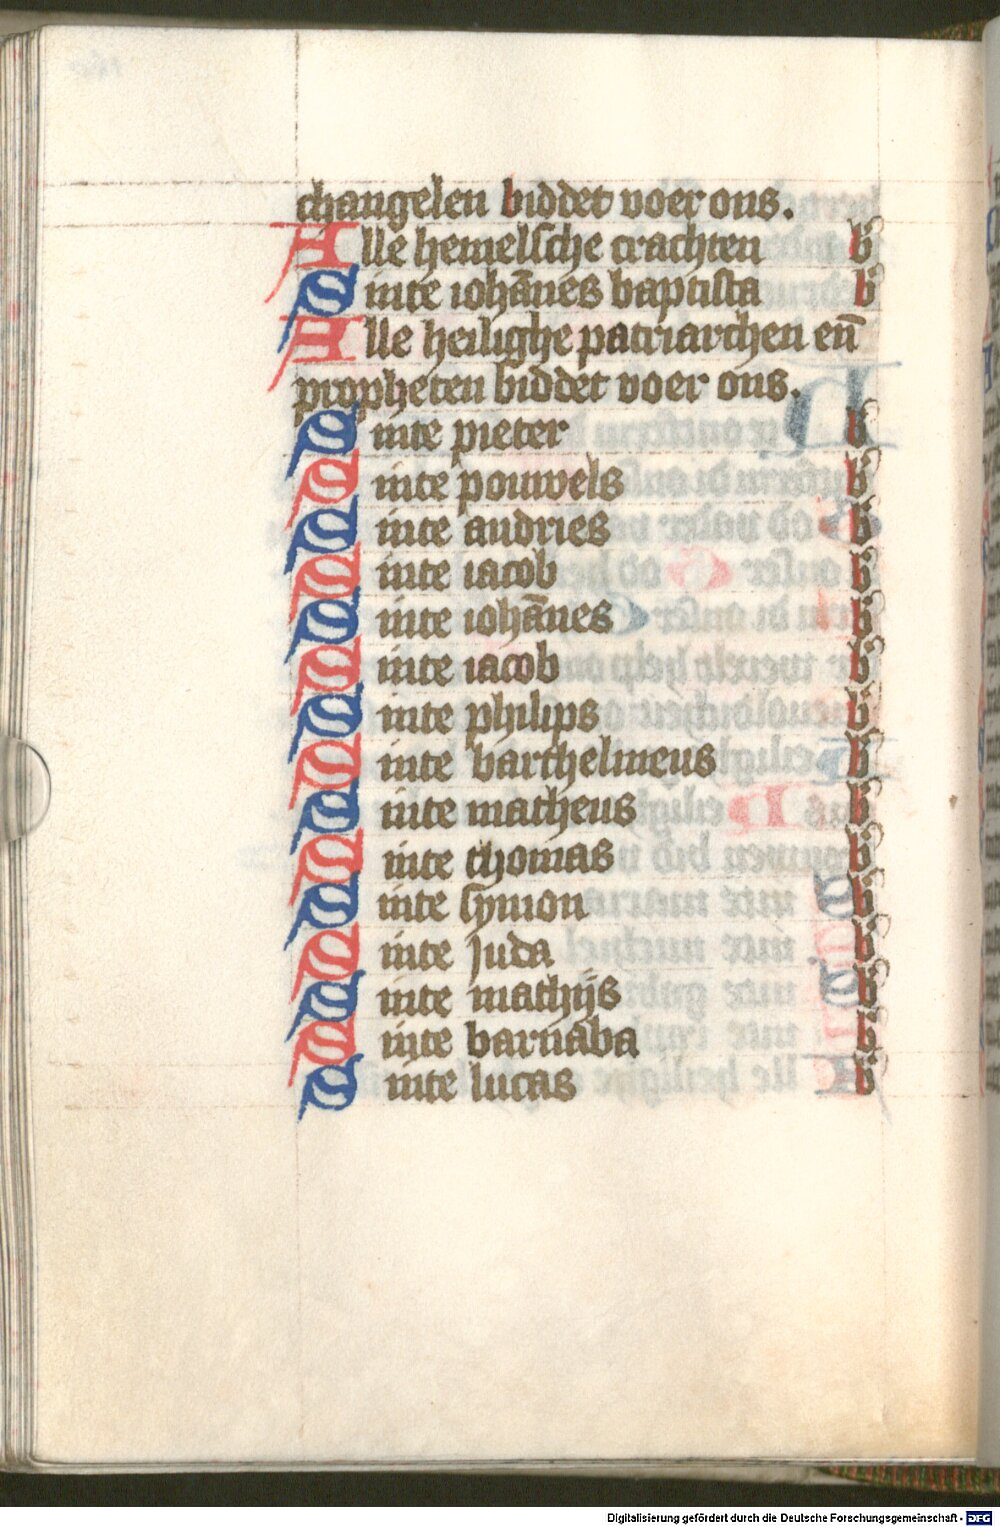 changelen biddet voer ons.
Alle hemelsche crachten b
Sinte iohānes baptista b
Alle heilighe patriarchen en̄
propheten biddet voer ons.
Sinte pieter b
Sinte pouwels b
Sinte andries b
Sinte iacob b
Sinte iohānes b
Sinte iacob b
Sinte philips b
Sinte barthelmeus b
Sinte matheus b
Sinte thomas b
Sinte symon b
Sinte juda b
Sinte mathijs b
Sinte barnaba b
Sinte lucas b
Digitalisierung gefördert durch die Deutsche Forschungsgemeinschaft - DFG